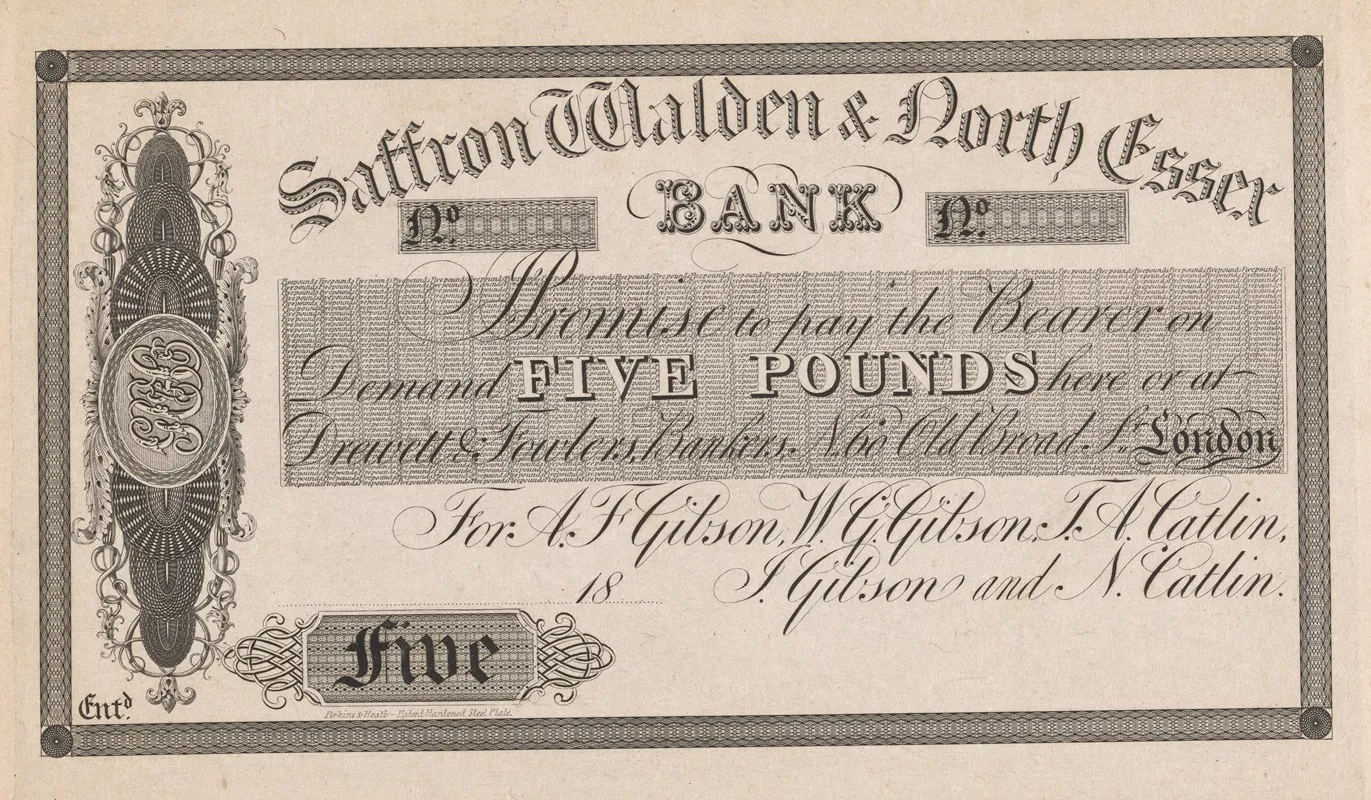 Saffron Walden & North Essex
Nº. BANK Nº.
I Promise to pay the Bearer on
Demand FIVE POUNDS here or at
Drewett & Fowlers, Bankers, Nº 60 Old Broad St. London
For A. F. Gibson, W. G. Gibson, J. A. Catlin,
18 J. Gibson and N. Catlin.
Five
Entᵈ.
Perkins & Heath – Patent Hardened Steel Plate.